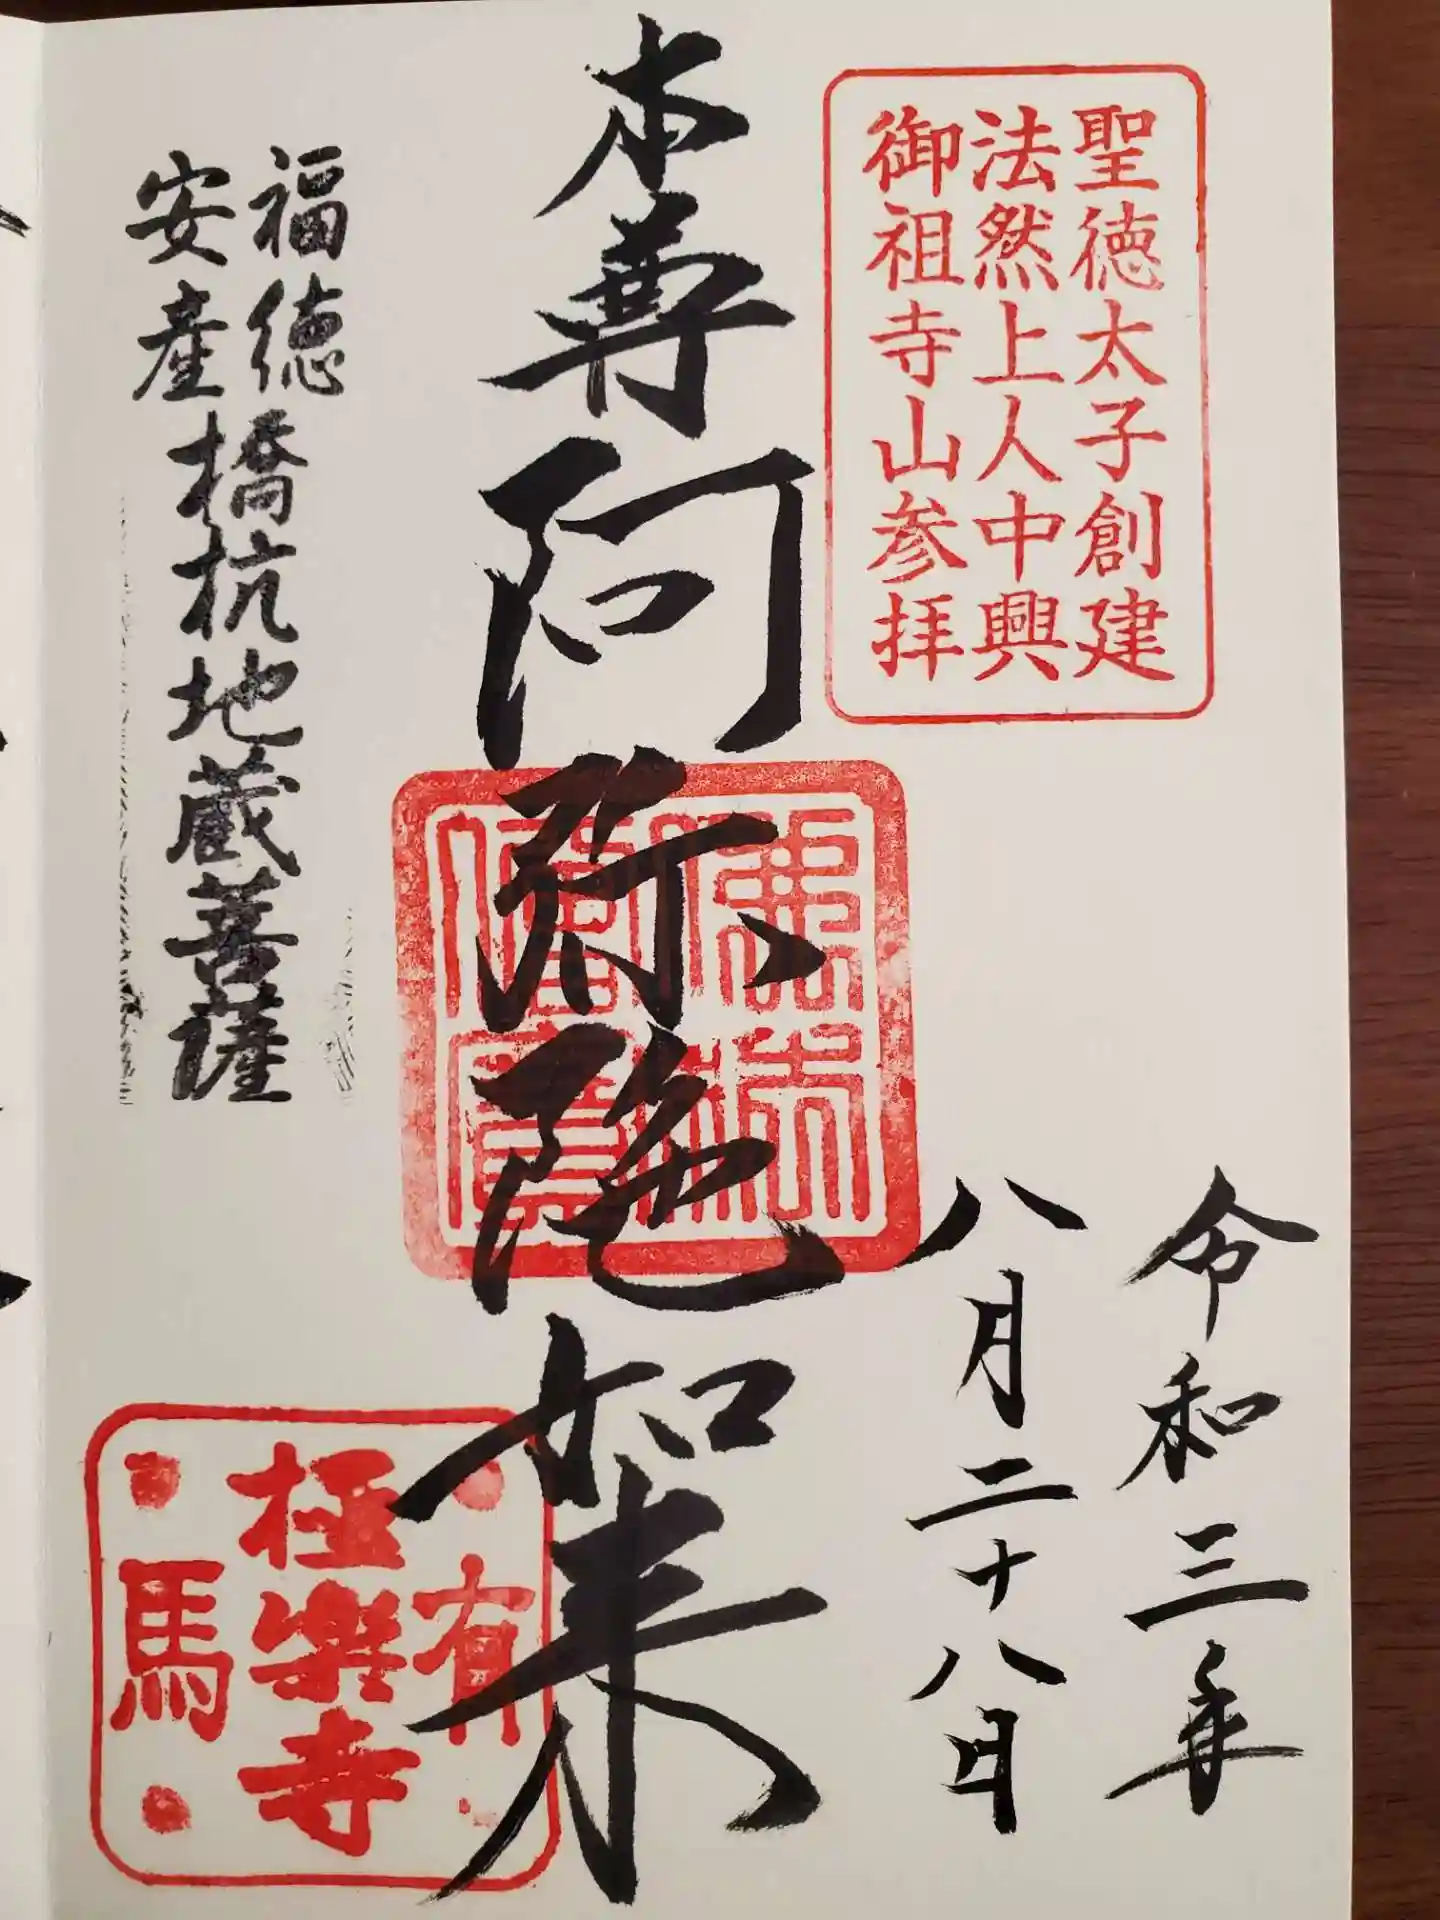 聖徳太子創建
法然上人中興
御祖寺山参拝
令和三年
八月二十八日
本尊阿弥陀如来
佛法僧寶
福徳
安産
橋杭地蔵菩薩
有馬
極楽寺